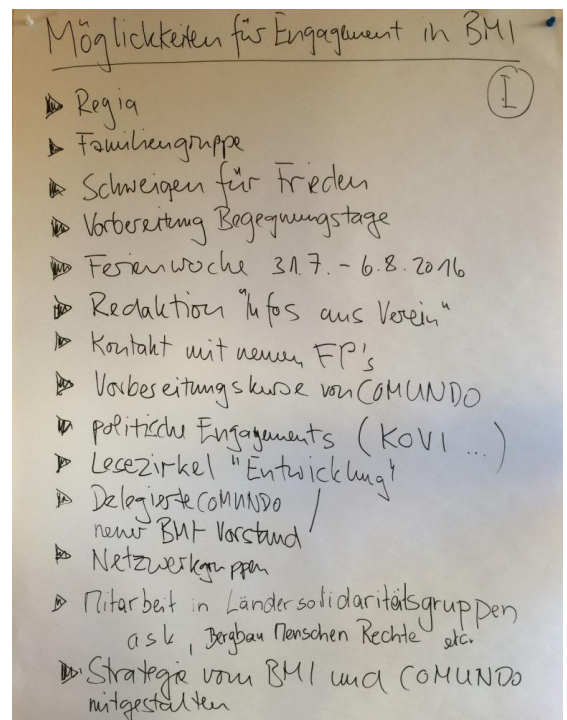 Möglickkeiten für Engagement in BMI
I
Regia
Familiengruppe
Schweigen für Frieden
Vorbereitung Begegnungstage
Ferienwoche 31.7. - 6.8.2016
Redaktion "Infos aus Verein"
Kontakt mit neuen FP's
Vorbereitungskurse von COMUNDO
politische Engagements (KOVI ...)
Lesezirkel "Entwicklung"
Delegierte COMUNDO /
neuer BMI-Vorstand
Netzwerkgruppen
Mitarbeit in Ländersolidaritätsgruppen
ask, Bergbau Menschen Rechte etc.
Strategie vom BMI und COMUNDO
mitgestalten